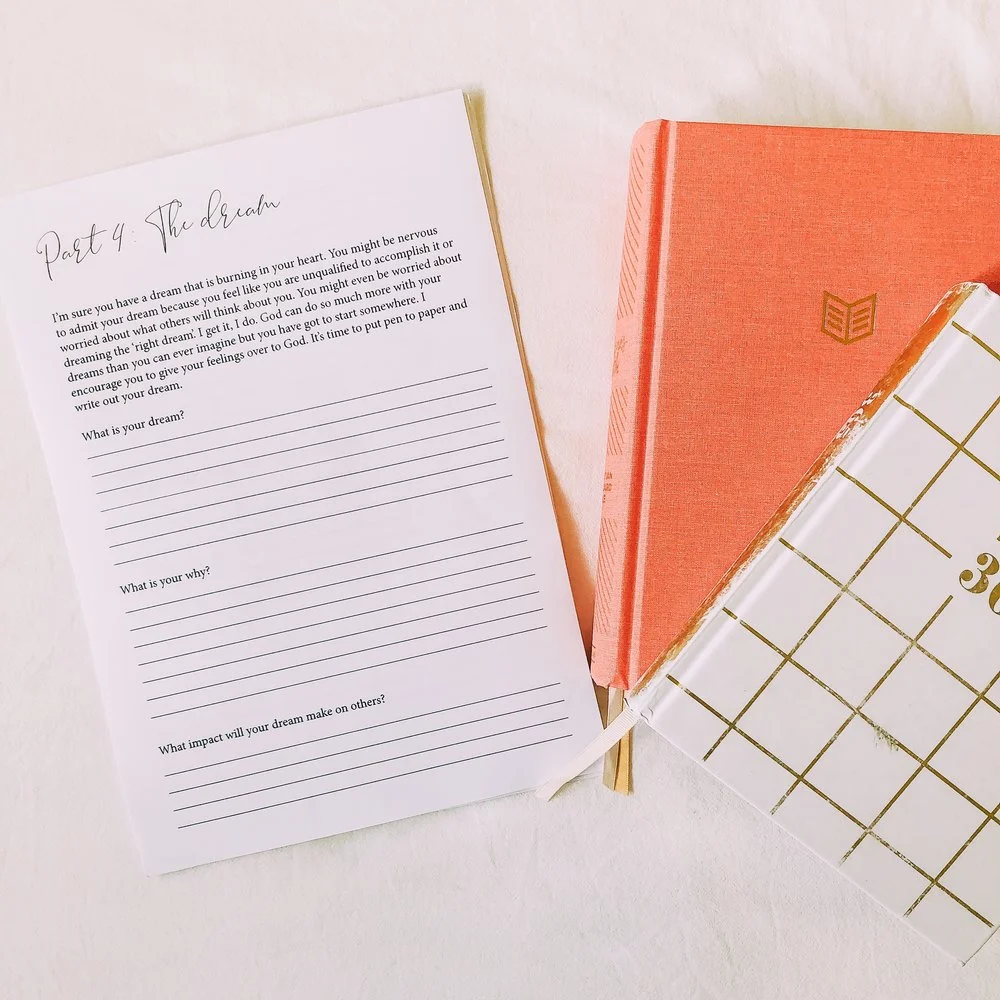 Part 4: The dream
I'm sure you have a dream that is burning in your heart. You might be nervous
to admit your dream because you feel like you are unqualified to accomplish it or
worried about what others will think about you. You might even be worried about
dreaming the 'right dream'. I get it, I do. God can do so much more with your
dreams than you can ever imagine but you have got to start somewhere. I
encourage you to give your feelings over to God. It's time to put pen to paper and
write out your dream.
What is your dream?
What is your why?
What impact will your dream make on others?